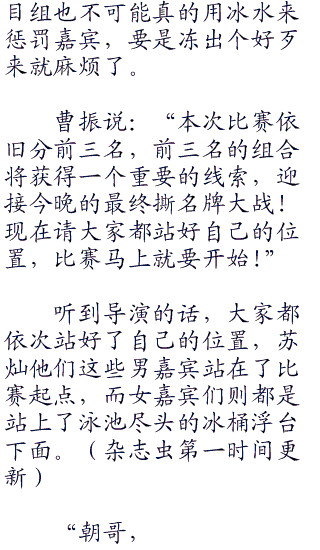 目组也不可能真的用冰水来
惩罚嘉宾，要是冻出个好歹
来就麻烦了。
曹振说：“本次比赛依
旧分前三名，前三名的组合
将获得一个重要的线索，迎
接今晚的最终撕名牌大战！
现在请大家都站好自己的位
置，比赛马上就要开始！”
听到导演的话，大家都
依次站好了自己的位置，苏
灿他们这些男嘉宾站在了比
赛起点，而女嘉宾们则都是
站上了泳池尽头的冰桶浮台
下面。（杂志虫第一时间更
新）
“朝哥，